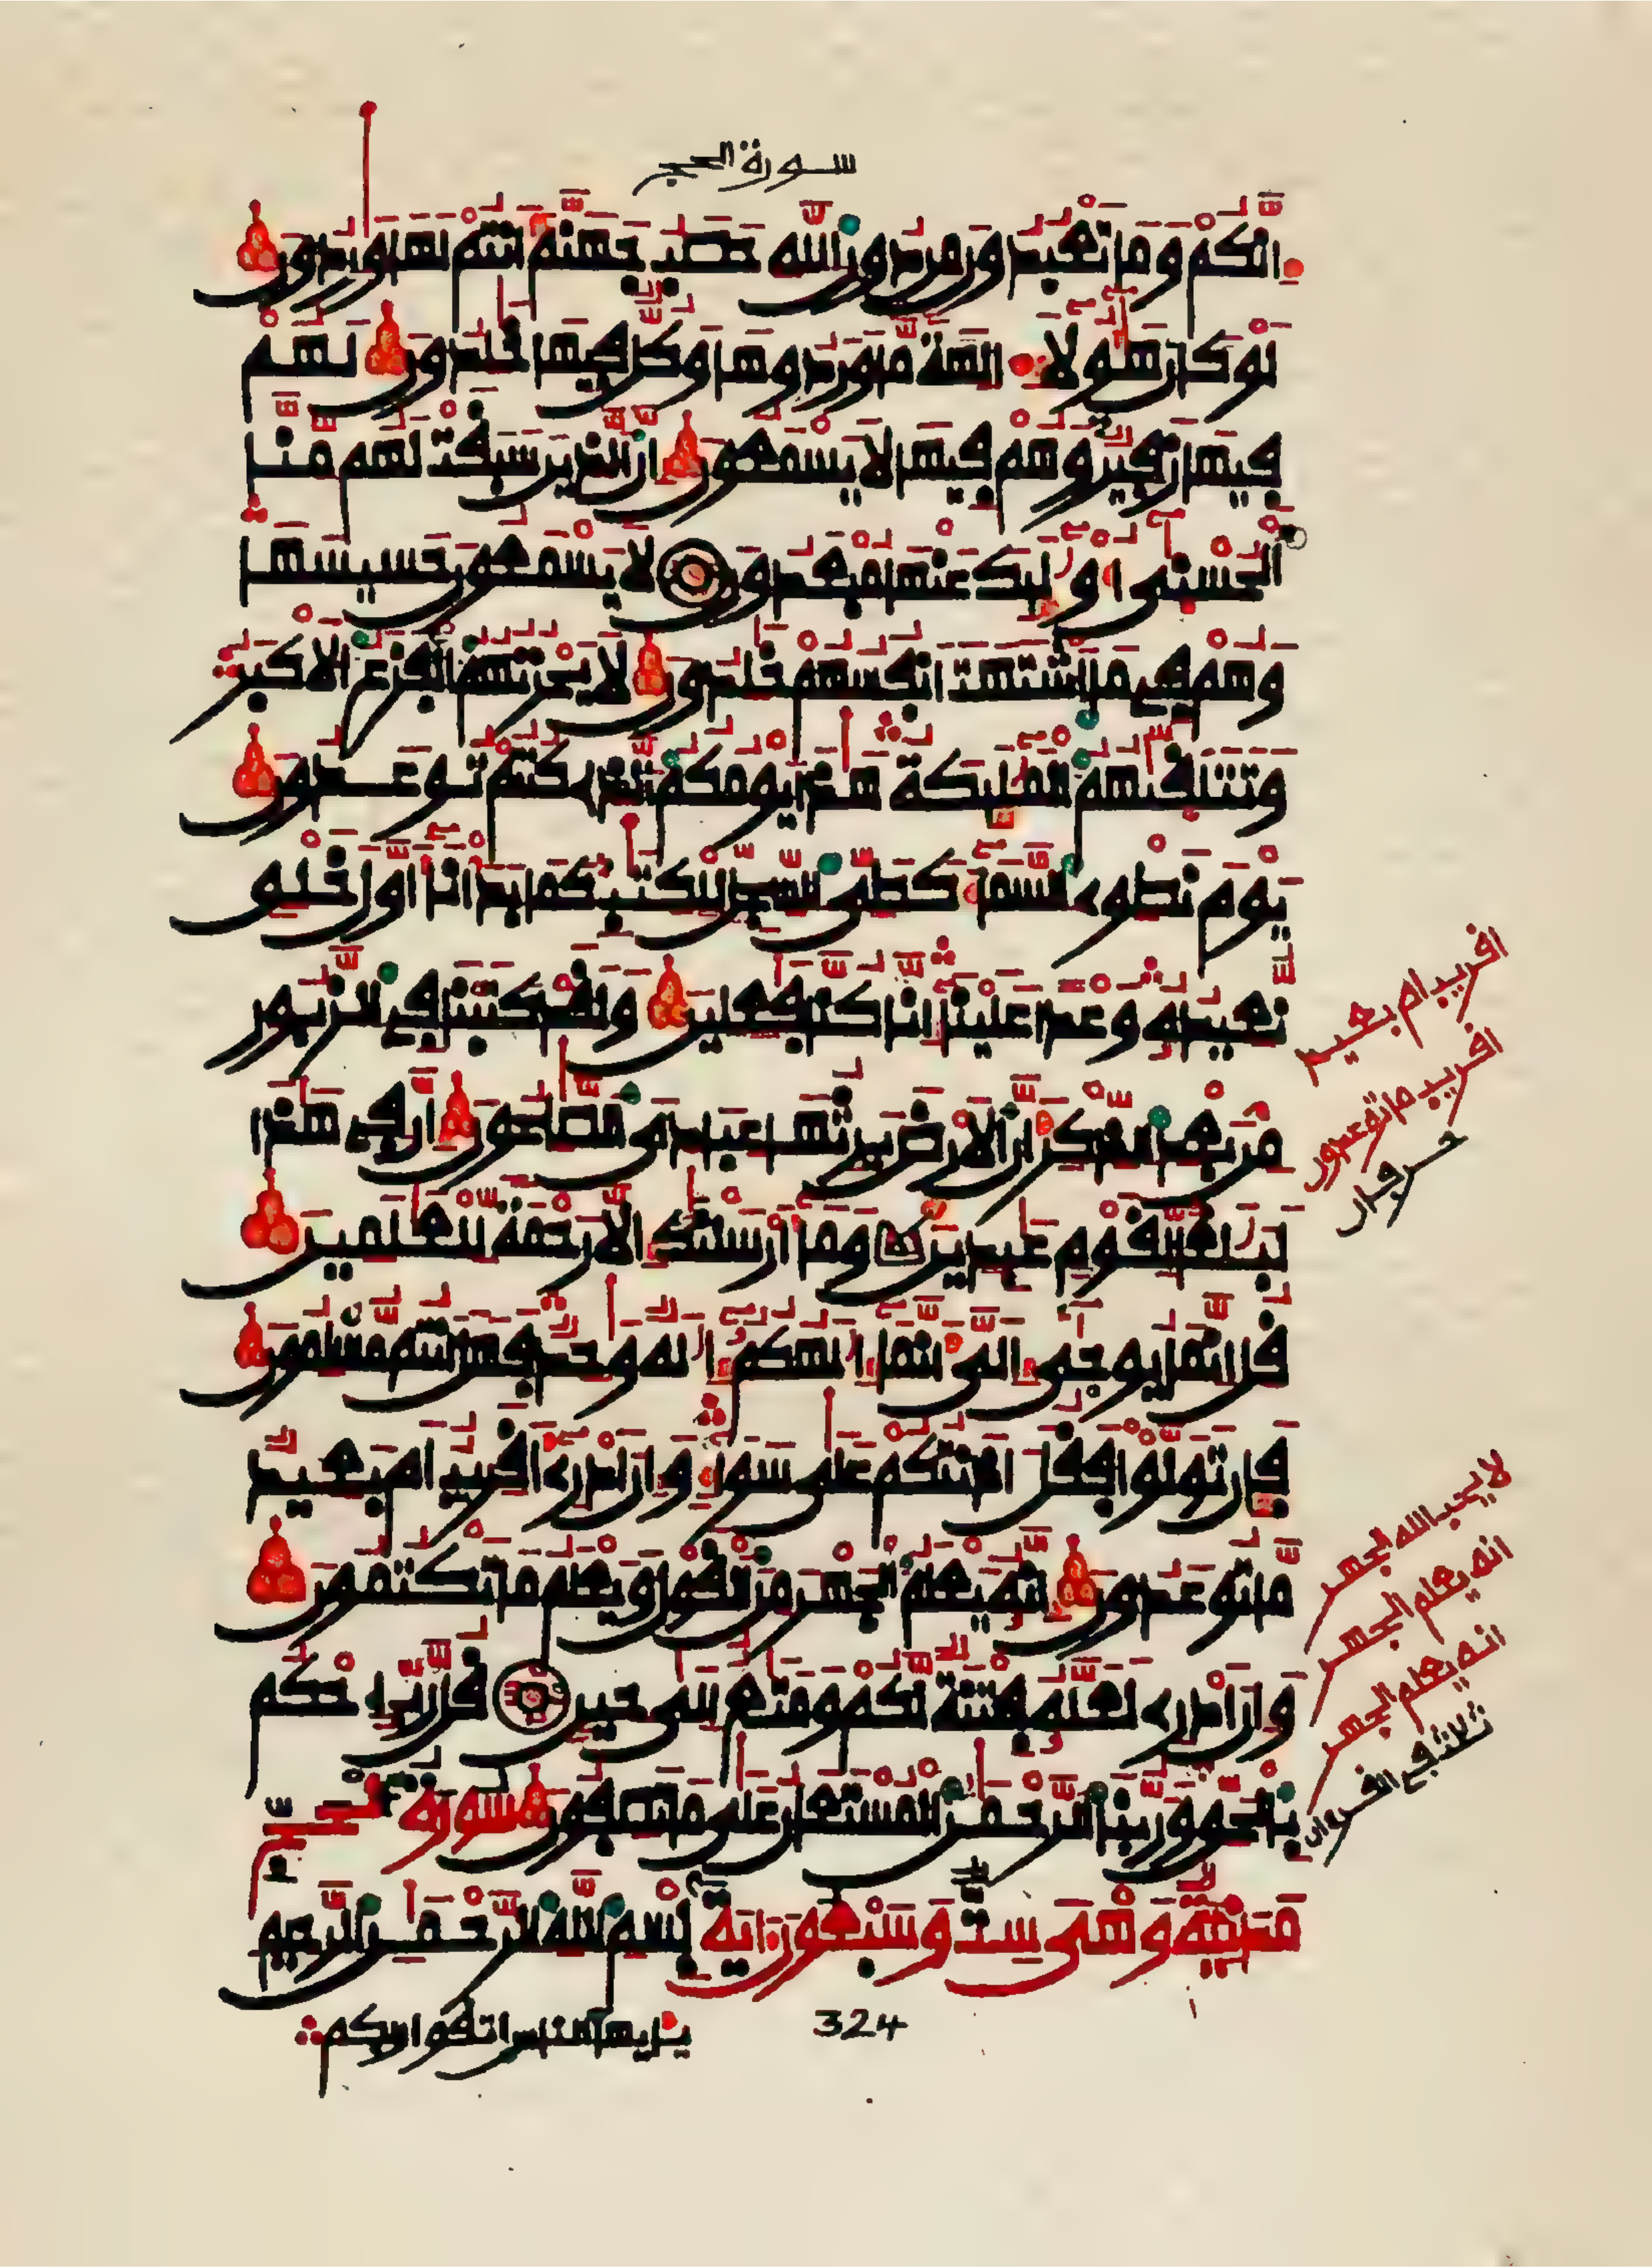 سورة الحج
انكم وما تعبدون من دون الله حصب جهنم انتم لها وردون
لو كان هولا الهة ما وردوها وكل فيها خلدون لهم
فيها زفير وهم فيها لا يسمعون ان الذين سبقت لهم منا
الحسنى اوليك عنها مبعدون لا يسمعون حسيسها
وهم في ما اشتهت انفسهم خلدون لا يحزنهم الفزع الاكبر
وتتلقيهم المليكة هذا يومكم الذي كنتم توعدون
يوم نطوي السما كطي السجل للكتب كما بدانا اول خلق
نعيده وعدا علينا انا كنا فعلين ولقد كتبنا في الزبور
من بعد الذكر ان الارض يرثها عبادي الصلحون ان في هذا
لبلغا لقوم عبدين وما ارسلنك الا رحمة للعلمين
قل انما يوحى الي انما الهكم اله وحد فهل انتم مسلمون
فان تولوا فقل اذنتكم على سوا وان ادري اقريب ام بعيد
ما توعدون انه يعلم الجهر من القول ويعلم ما تكتمون
وان ادري لعله فتنة لكم ومتع الى حين قل رب احكم
بالحق وربنا الرحمن المستعان على ما تصفون سورة الحج
مدنية وهي ست وسبعون اية بسم الله الرحمن الرحيم
يايها الناس اتقوا ربكم
324
اقريب ام بعيد
اقريب ما توعدون
حرفان
لا يحب الله الجهر
انه يعلم الجهر
انه يعلم الجهر
ثلاث في القرءان